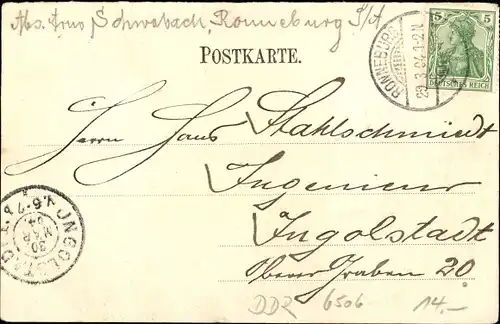 Abs. Arno Schwabach, Ronneburg S/A
POSTKARTE.
RONNEBURG
29.3.04.1-2N
5 5
DEUTSCHES REICH
Herrn Hans Stahlschmidt
Ingenieur
Ingolstadt
Oberer Graben 20
INGOLSTADT
V.6-7
30
MAR
04
DDR 6506 14,-